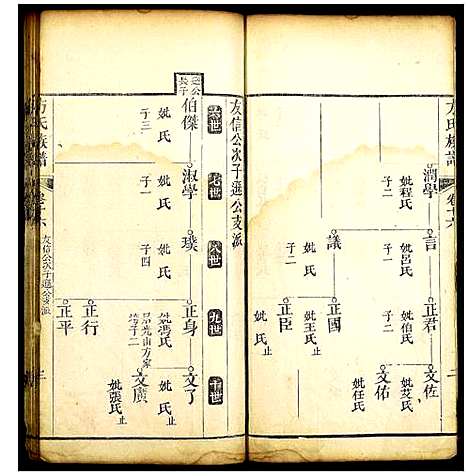 方氏族譜
卷十六
潤學
妣程氏
子二
言
妣呂氏
子二
正君
妣伯氏
子二
文佐
妣芟氏
止
文佑
妣任氏
止
議
子二
正國
妣王氏
止
正臣
妣氏
止
二
友信公次子遜公支派
六世
七世
八世
九世
十世
公
長子
伯傑
妣氏
子三
淑學
妣氏
子一
璞
妣氏
子四
正身
妣馮氏
子二
文了
止
文廣
妣張氏
止
正行
正平
方氏族譜
卷十六
友信公次子遜公支派
三